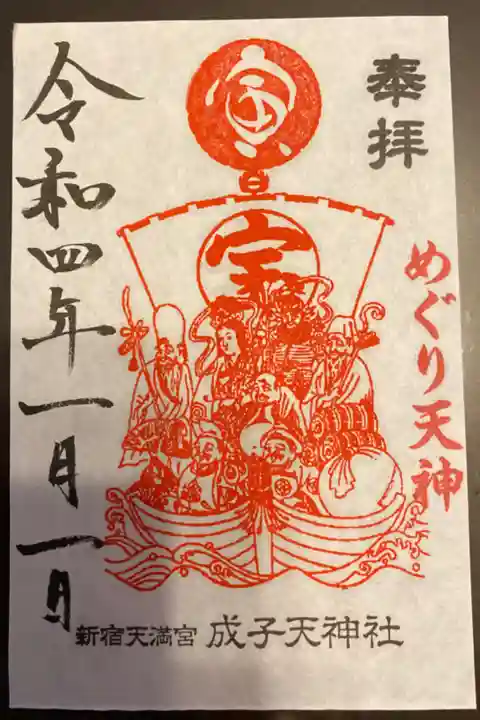 奉拝
めぐり天神
寅
宝
令和四年一月一日
新宿天満宮 成子天神社